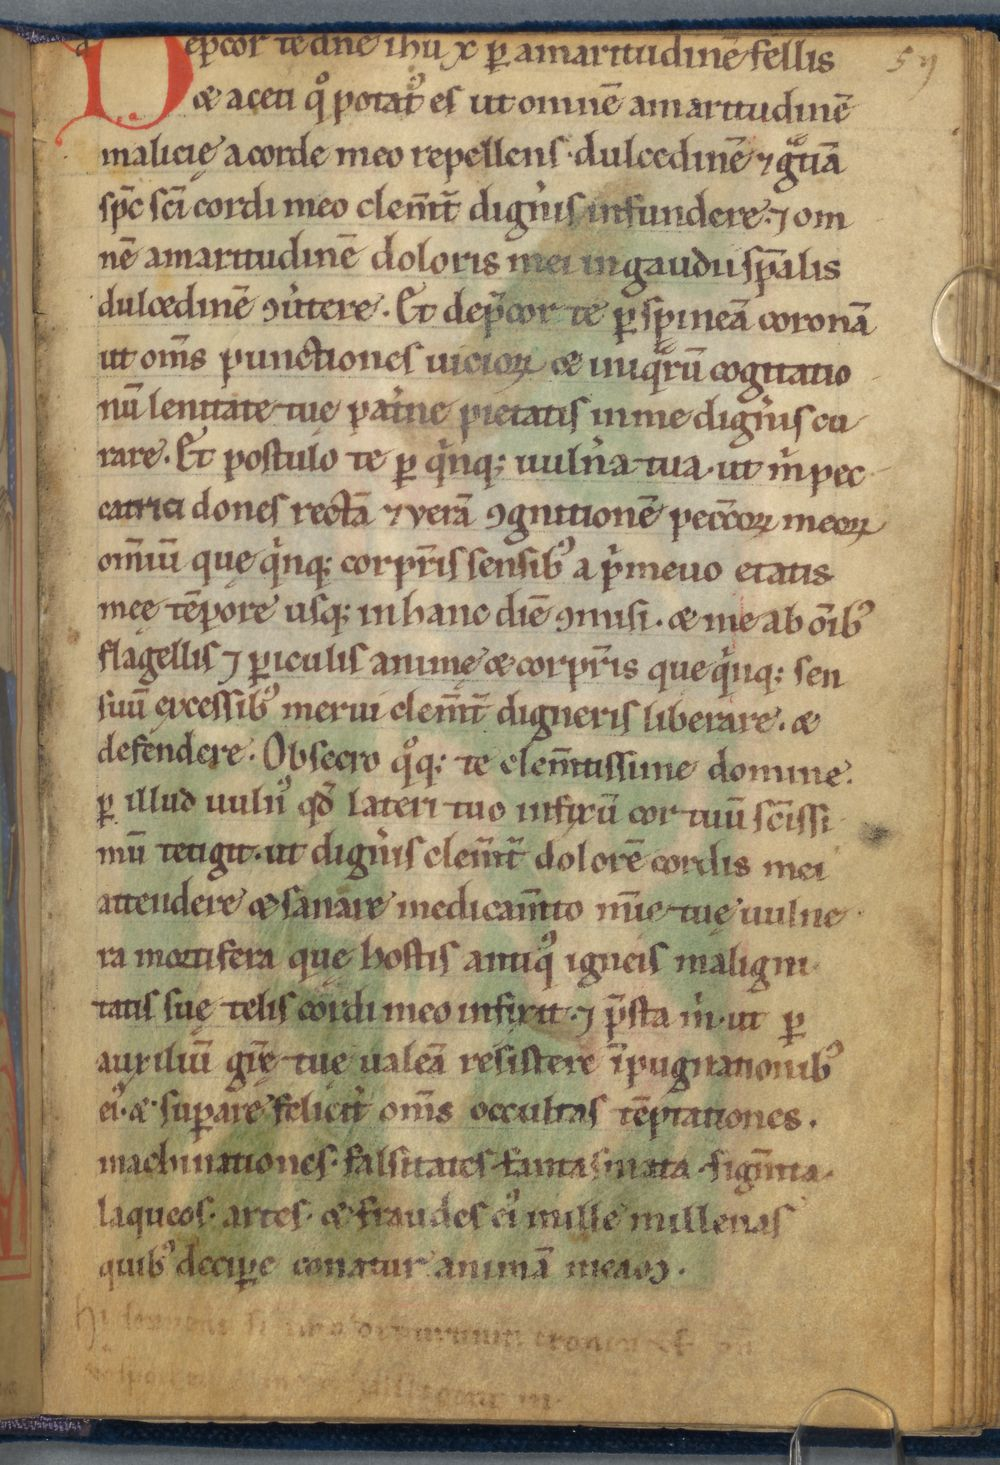 Dep̄cor te dn̄e ihu x ꝑ amaritudinē fellis
& aceti qͦ potatꝰ es ut omnē amaritudinē
malicię a corde meo repellens · dulcedinē ⁊ gͣtiā
sp̄c sc̄i cordi meo clem̄t̄ digņis infundere · ⁊ om
nē amaritudinē doloris mei in gaudii sp̄alis
dulcedinē ꝯutere · Et dep̄cor te ꝑ spineā coronā
ut om̄s punctiones uicioꝝ & iniq̄rū cogitatio
nū lenitate tue paͭne pietatis in me dign̉is cu
rare · Et postulo te ꝑ qͥnqꝫ uuln̉a tua · ut m̉ pec
catrici dones rectā ⁊ verā ꝯgnitionē pecc̄oꝝ meoꝝ
om̄iū quę qͥnqꝫ corpr̄is sensibꝰ a pͥmeuo etatis
meę tēpore usqꝫ in hanc diē ꝯmisi · & me ab oīb̄ꝰ
flagellis ⁊ ꝑiculis animę & corpr̄is quę qͥnqꝫ sen
suū excessibꝰ merui clem̄t̄ digneris liberare · &
defendere · Obsecro qͦqꝫ te clem̄tissime domine ·
ꝑ illud uulnꝰ qd̄ lateri tuo infixū cor tuū sc̄issi
mū tetigit · ut dign̉is clem̄t̄ dolorē cordis mei
attendere & sanare medicam̄to mīe tuę uulne
ra mortifera quę hostis antiqꝰ igneis maligni
tatis suę telis cordi meo infixit · ⁊ p̄sta m̉ · ut ꝑ
auxiliū gr̄ę tuę ualeā resistere īpugnationibꝰ
eiꝰ · & suꝑare felicit̉ om̄s occultas tēptationes ·
machinationes · falsitates · fantasmata · figm̄ta ·
laqueos · artes · & fraudes eiꝰ mille millenas
quibꝰ deciꝑe conatur animā meam ·